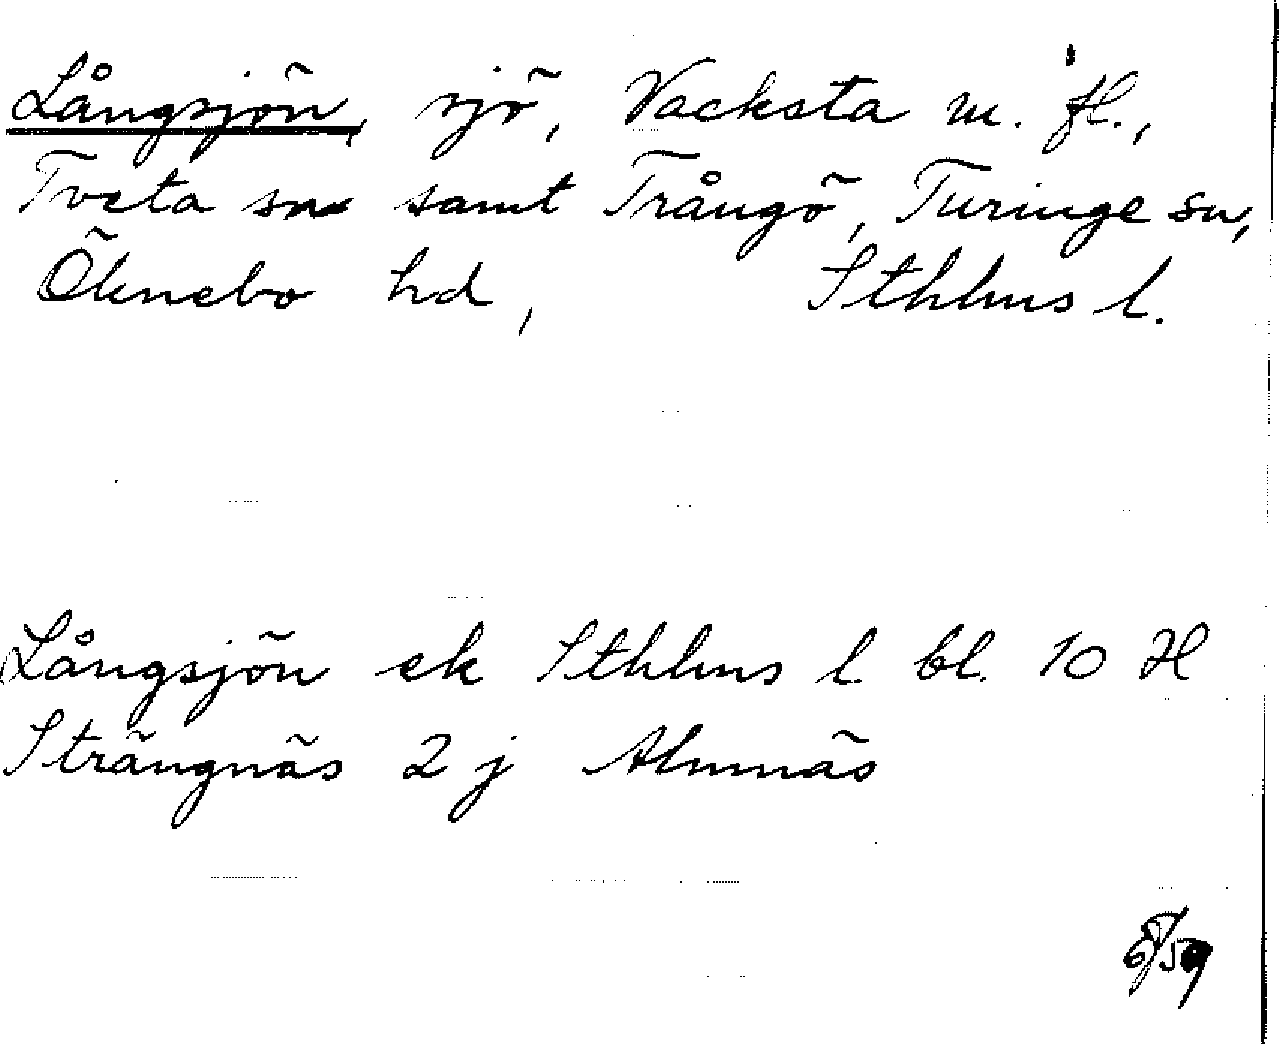 Långsjön, sjö, Vacksta m. fl.,
Tveta sn samt Trångö, Turinge sn,
Öknebo hd, Sthlms l.
Långsjön ek Sthlms l bl. 10 H
Strängnäs 2 j Almnäs